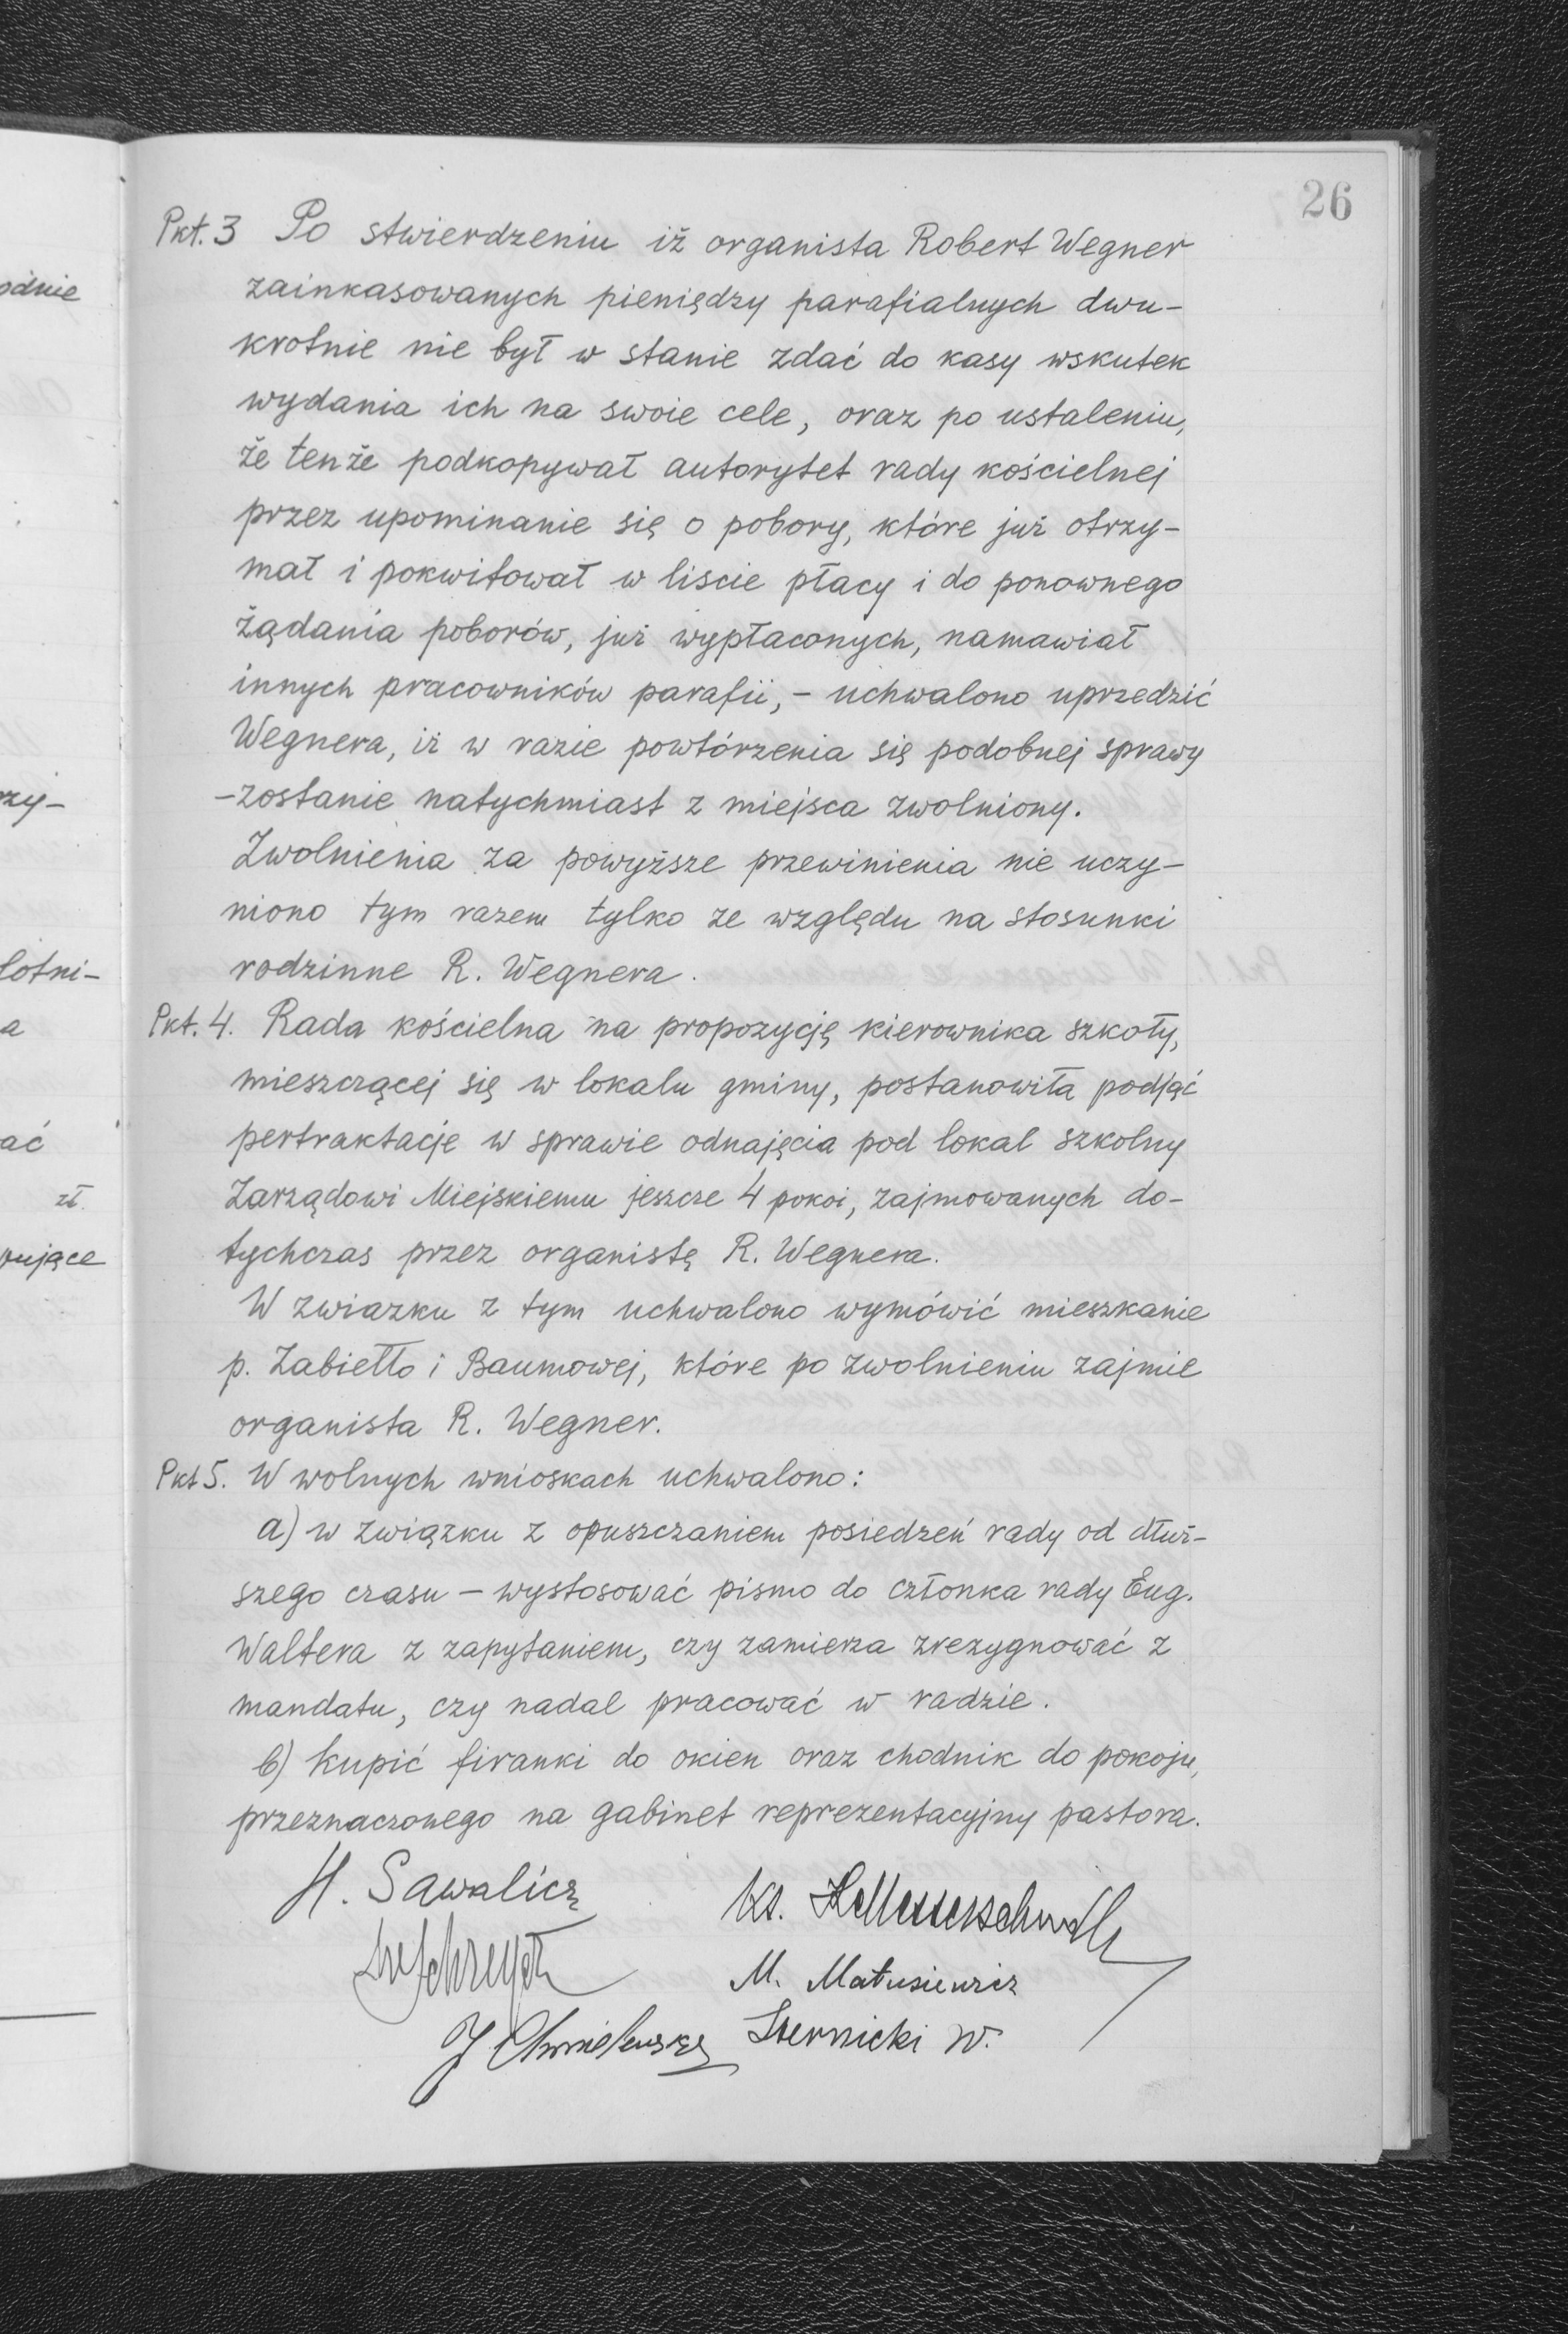 26
Pkt. 3 Po stwierdzeniu iż organista Robert Wegner
zainkasowanych pieniędzy parafialnych dwu-
krotnie nie był w stanie zdać do kasy wskutek
wydania ich na swoie cele, oraz po ustaleniu,
że tenże podkopywał autorytet rady kościelnej
przez upominanie się o pobory, które już otrzy-
mał i pokwitował w liscie płacy i do ponownego
żądania poborów, już wypłaconych, namawiał
innych pracowników parafii, – uchwalono uprzedzić
Wegnera, iż w razie powtórzenia się podobnej sprawy
– zostanie natychmiast z miejsca zwolniony.
Zwolnienia za powyższe przewinienia nie uczy-
niono tym razem tylko ze względu na stosunki
rodzinne R. Wegnera.
Pkt. 4. Rada kościelna na propozycję kierownika szkoły,
mieszczącej się w lokalu gminy, postanowiła podjąć
pertraktacje w sprawie odnajęcia pod lokal szkolny
Zarządowi Miejskiemu jeszcze 4 pokoi, zajmowanych do-
tychczas przez organistę R. Wegnera.
W zwiazku z tym uchwalono wymówić mieszkanie
p. Zabiełło i Baumowej, które po zwolnieniu zajmie
organista R. Wegner.
Pkt 5. W wolnych wnioskach uchwalono:
a) w związku z opuszczaniem posiedzeń rady od dłuż-
szego czasu – wystosować pismo do członka rady Eug.
Waltera z zapytaniem, czy zamierza zrezygnować z
mandatu, czy nadal pracować w radzie.
b) kupić firanki do okien oraz chodnik do pokoju,
przeznaczonego na gabinet reprezentacyjny pastora.
H. Sawalicz
Ks. Messerschmidt
M. Matusiewicz
J. Chmielewski
W.
odnie
rzy-
lotni-
a
ać
zł.
pujące